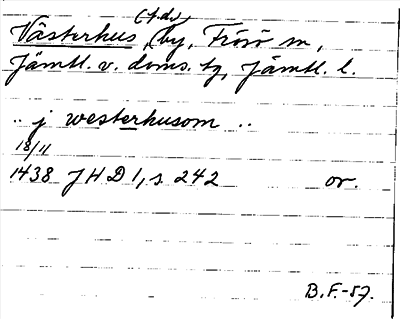 Västerhus (f.d.) by, Frösö sn,
Jämtl. v. doms. tg, Jämtl. l.
.. j westerhusom ..
18/11
1438 JHD 1, s. 242 or.
B.F.-57.